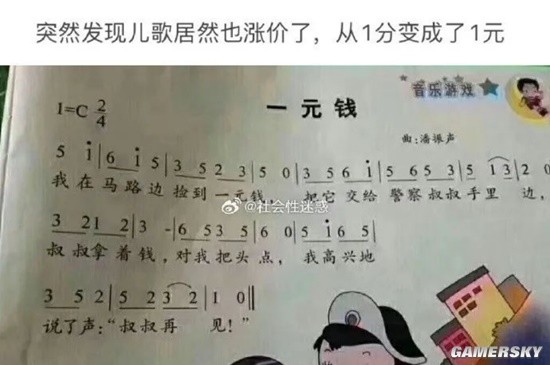 突然发现儿歌居然也涨价了，从1分变成了1元
音乐游戏
1=C 2/4
一元钱
曲:潘振声
5 i | 6 i 5 | 3 5 2 3 | 5 0 | 3 5 6 i | 5 3 5 | 5 1 3 | 2 0
我在马路边捡到一元钱，把它交给警察叔叔手里边，
@社会性迷惑
3 2 1 2 | 3 - | 6 5 3 5 | 6 0 | 5 i 6 5 |
叔叔拿着钱，对我把头点，我高兴地
3 5 2 | 5 2 3 2 | 1 0 ‖
说了声:“叔叔再见！”
GAMERSKY